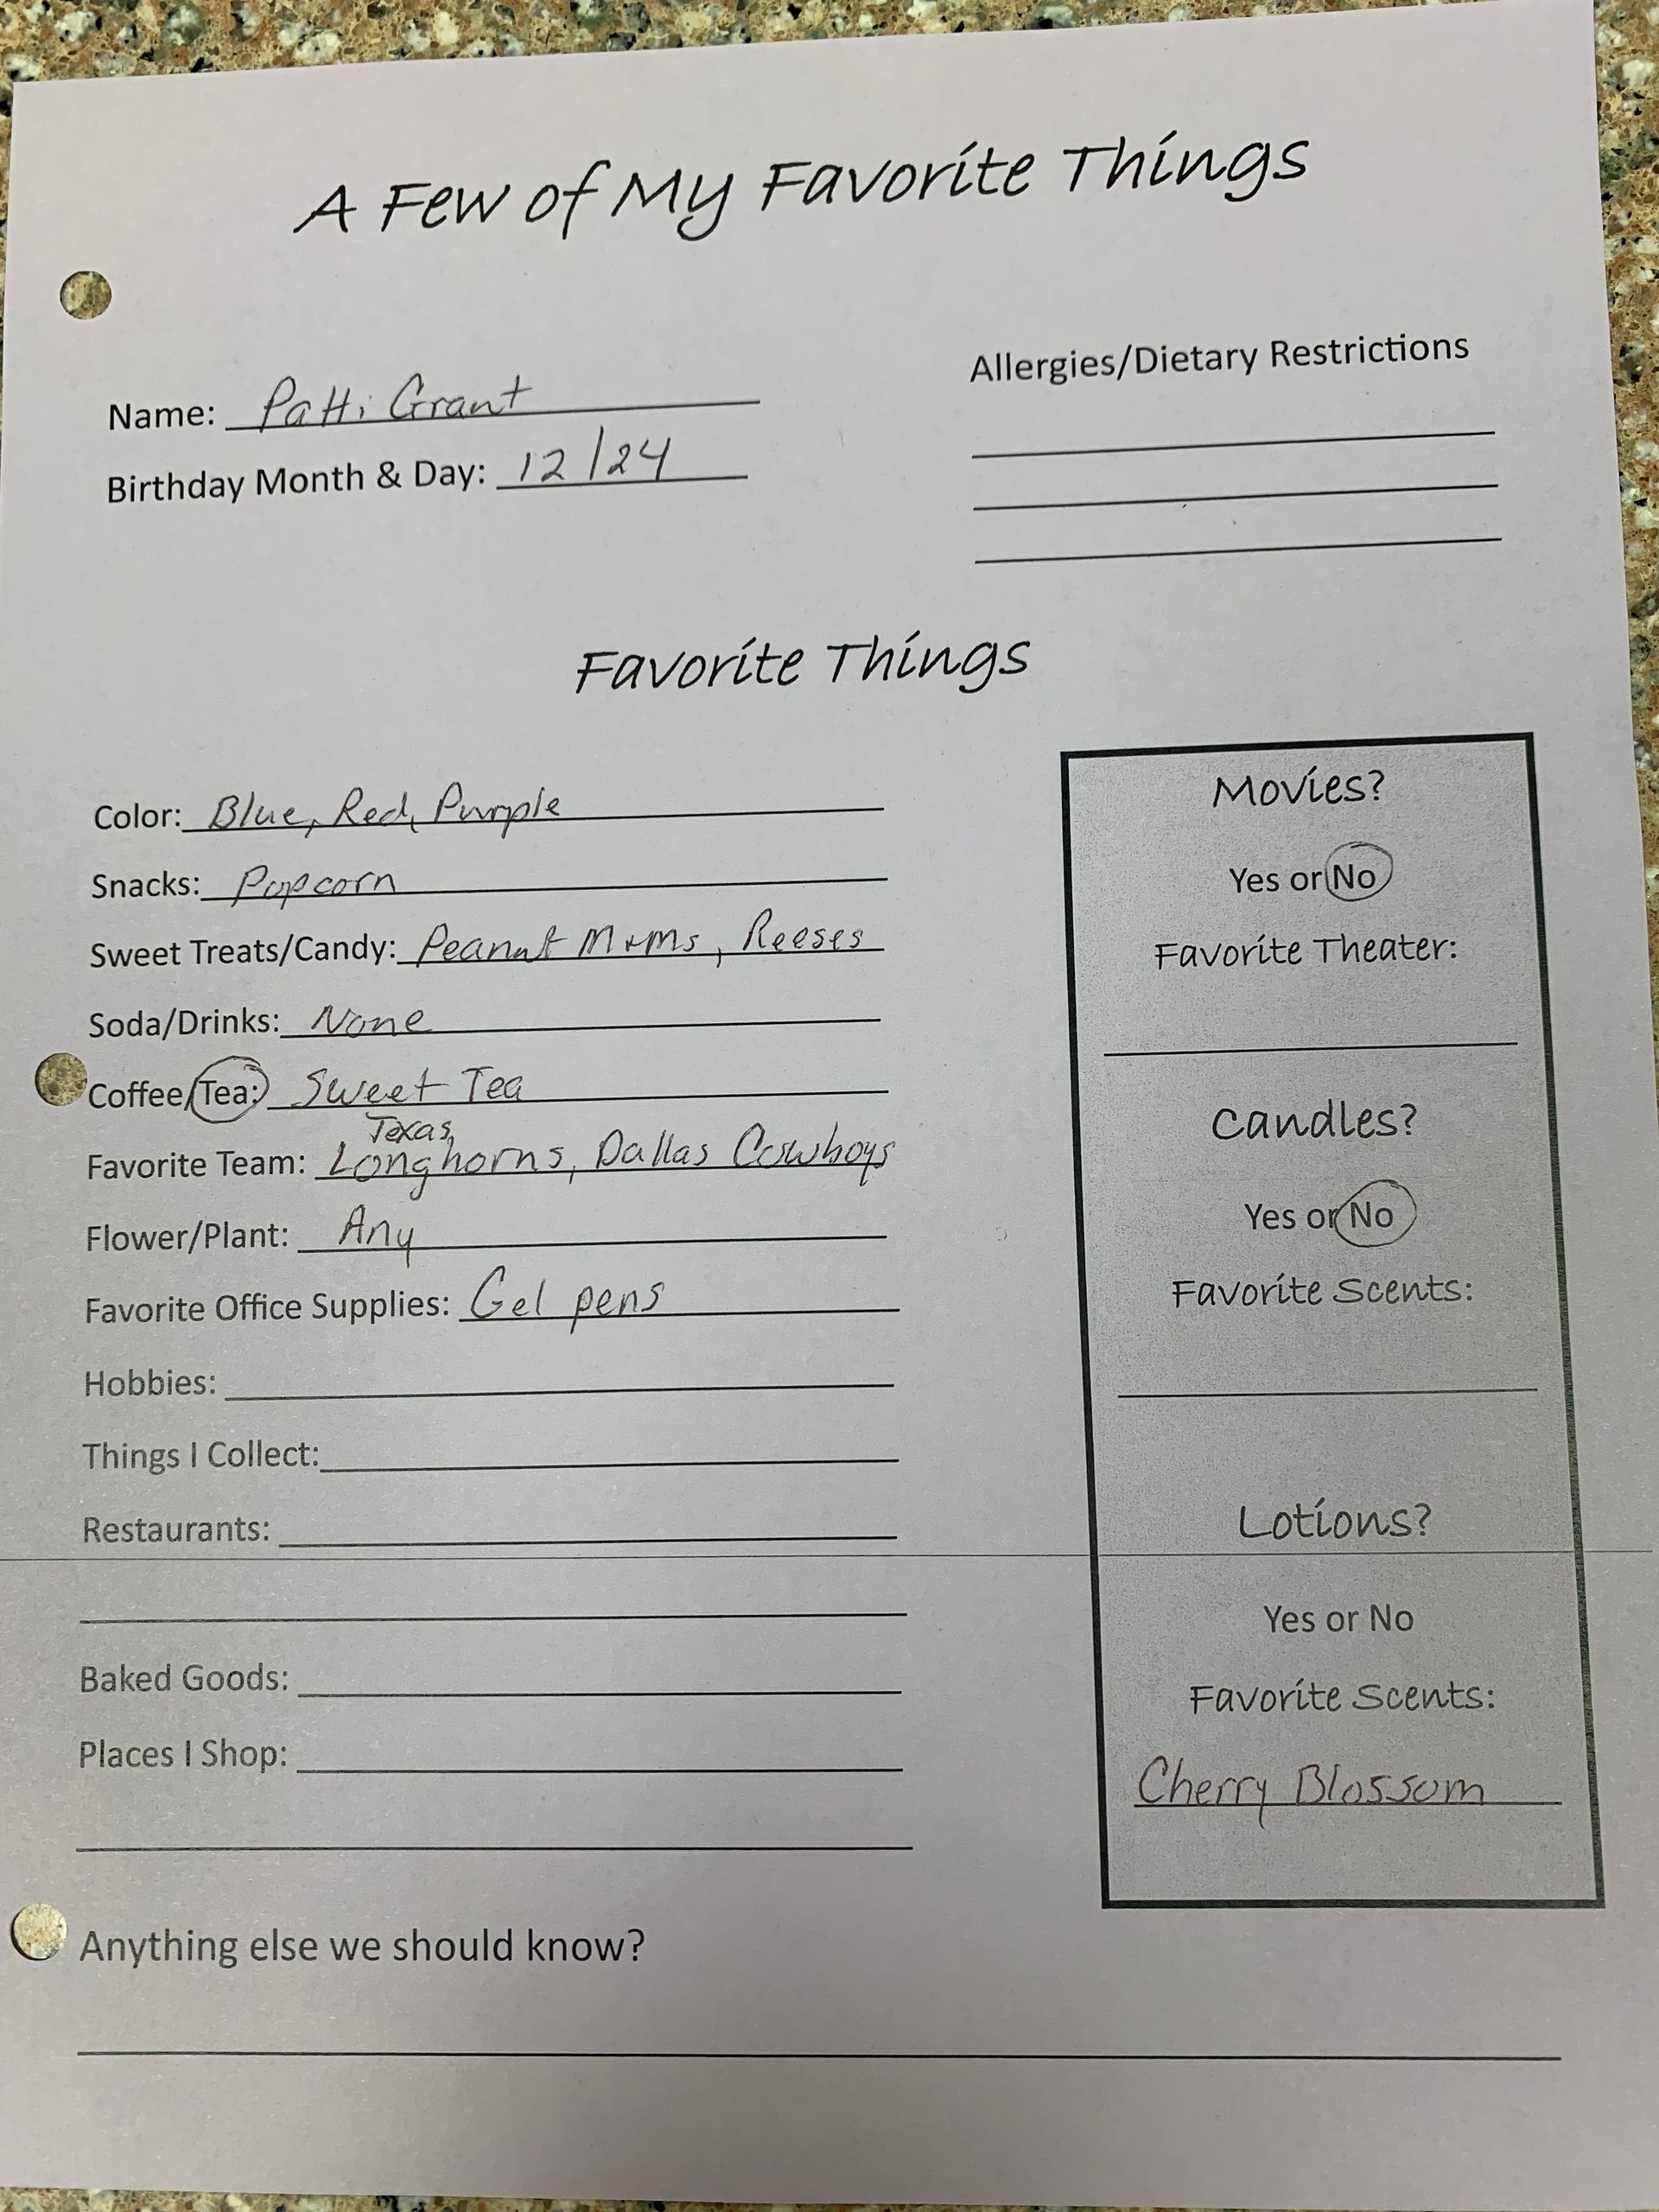 A Few of My Favorite Things
Name: Patti Grant
Birthday Month & Day: 12/24
Allergies/Dietary Restrictions
Favorite Things
Color: Blue, Red, Purple
Snacks: Popcorn
Sweet Treats/Candy: Peanut M+Ms, Reeses
Soda/Drinks: None
Coffee/Tea: Sweet Tea
Favorite Team: Texas Longhorns, Dallas Cowboys
Flower/Plant: Any
Favorite Office Supplies: Gel pens
Hobbies:
Things I Collect:
Restaurants:
Baked Goods:
Places I Shop:
Movies?
Yes or No
Favorite Theater:
Candles?
Yes or No
Favorite Scents:
Lotions?
Yes or No
Favorite Scents:
Cherry Blossom
Anything else we should know?